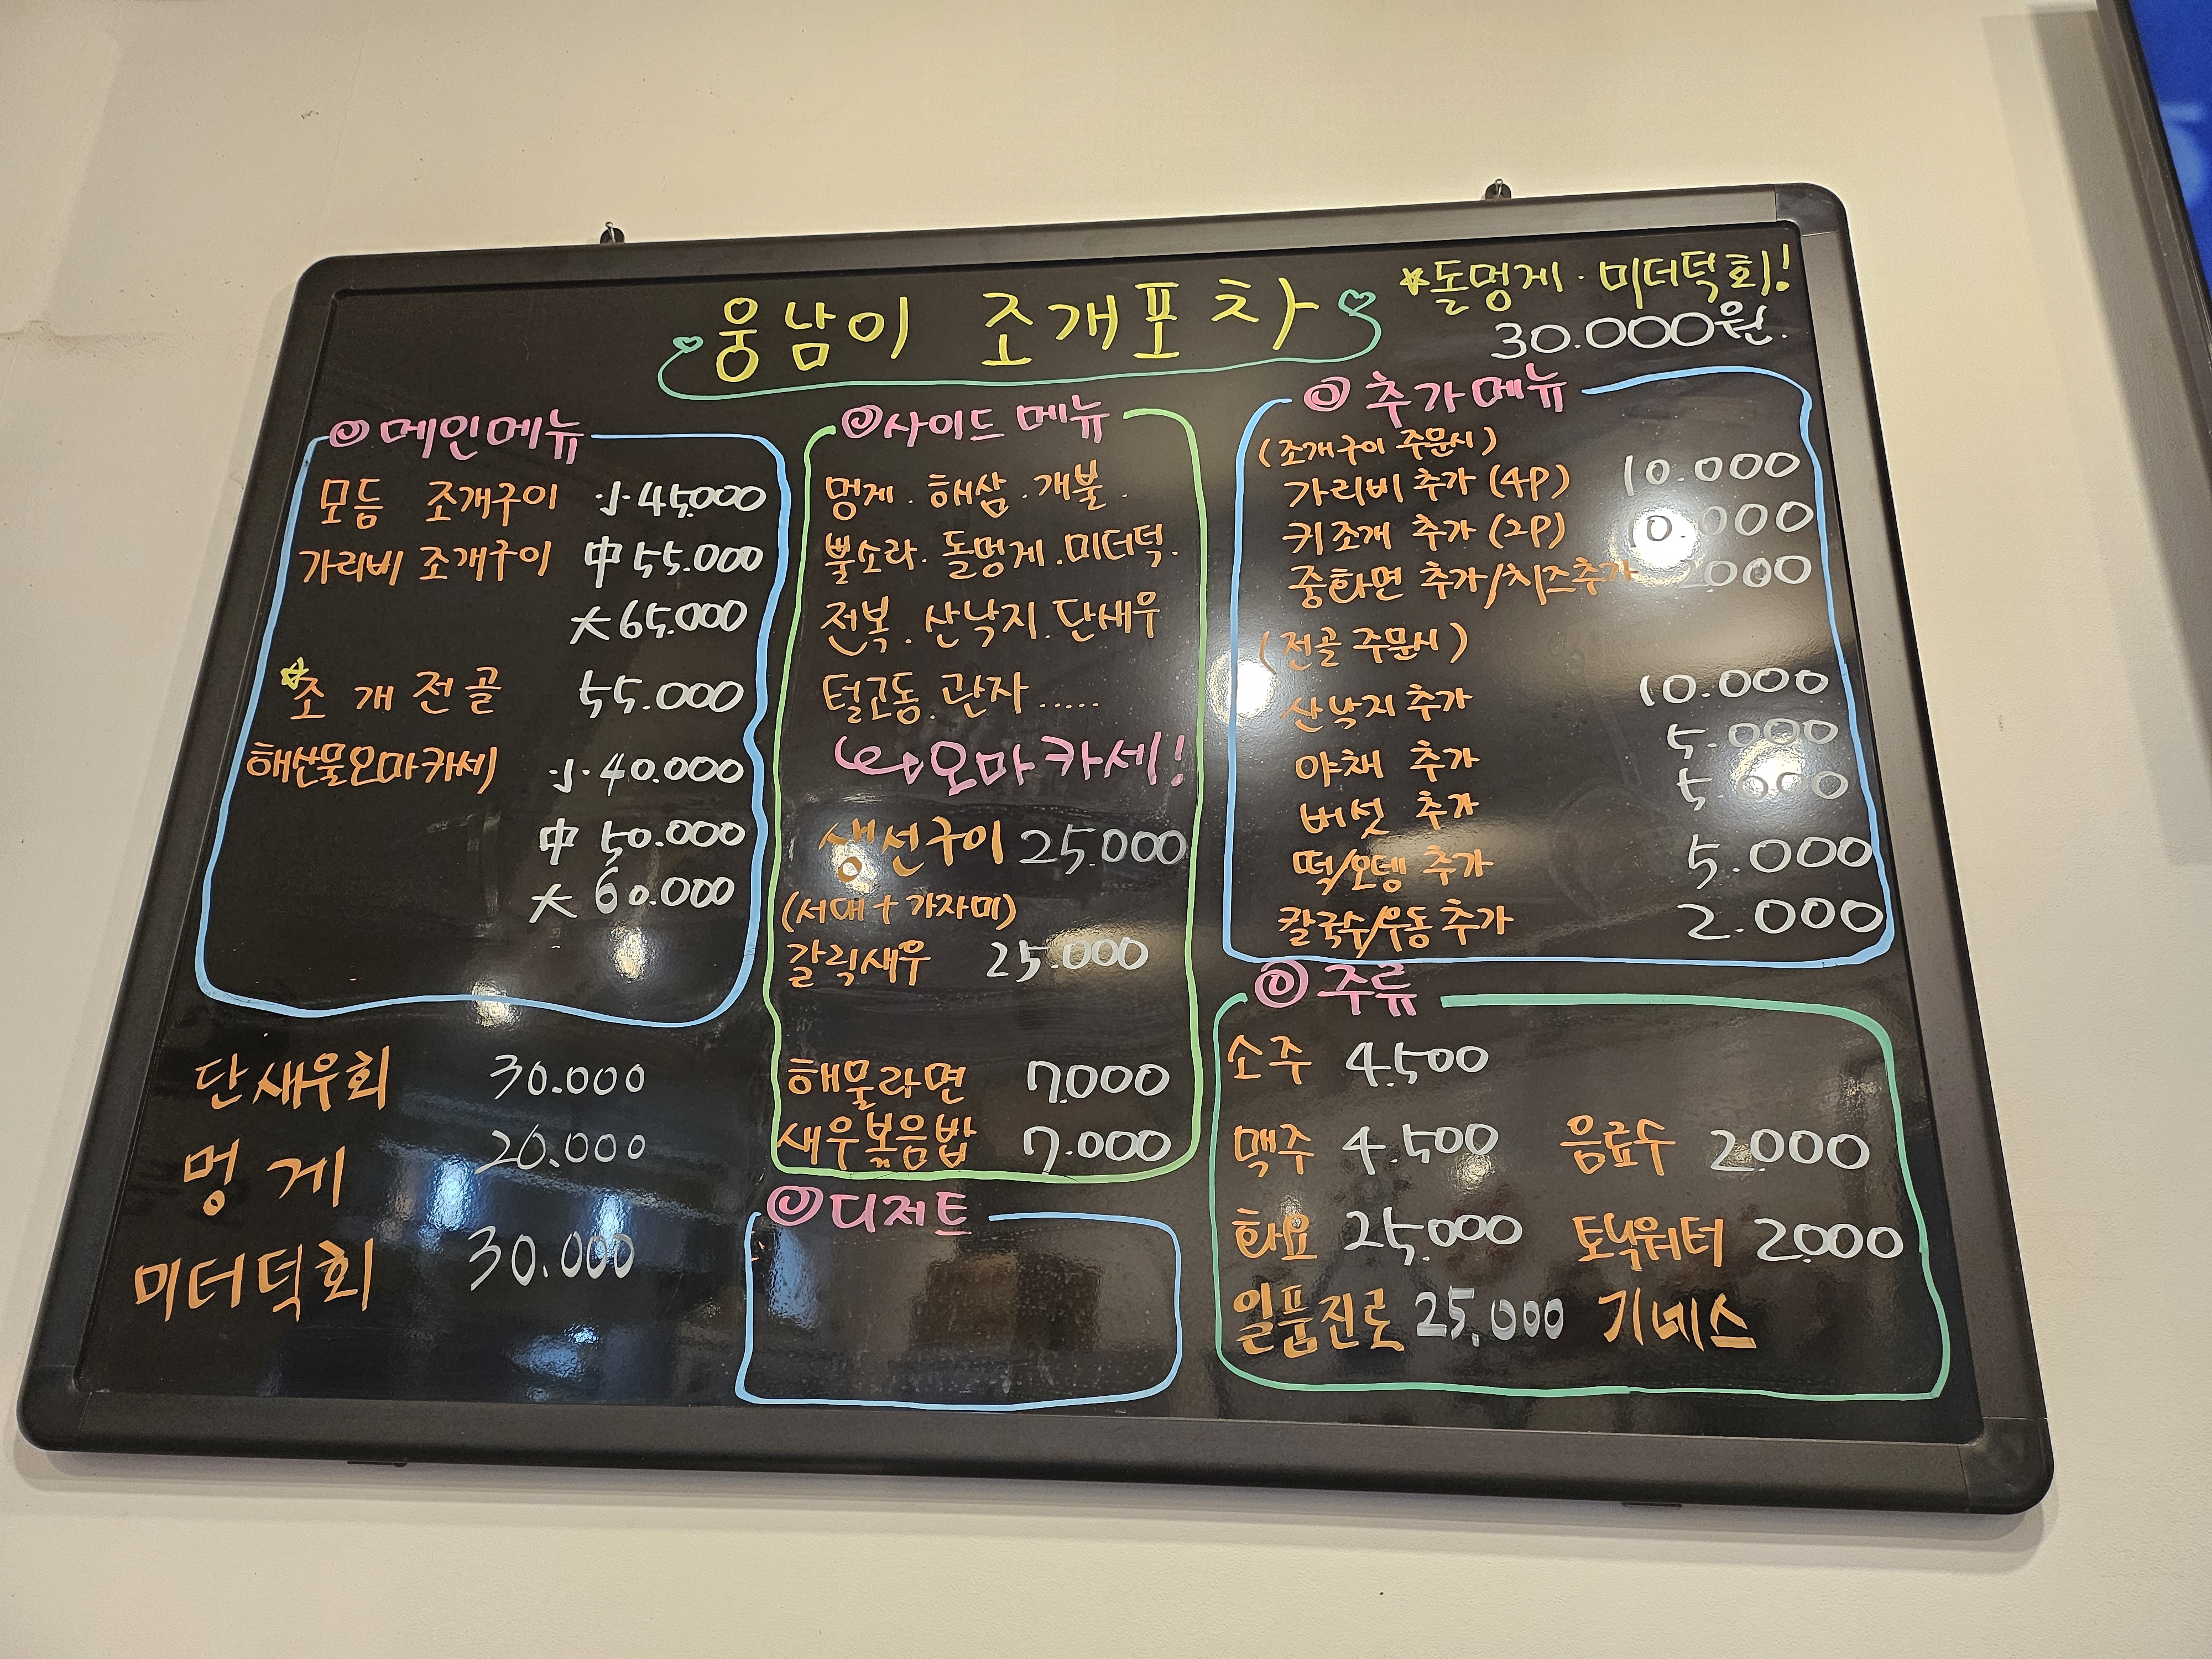 웅남이 조개포차
☆돌멍게·미더덕회!
30.000원.
메인메뉴
모듬 조개구이 小 45.000
가리비 조개구이 中 55.000
大 65.000
☆조개전골 55.000
해산물오마카세 小 40.000
中 50.000
大 60.000
단새우회 30.000
멍게 20.000
미더덕회 30.000
사이드 메뉴
멍게. 해삼. 개불.
뿔소라. 돌멍게. 미더덕.
전복. 산낙지. 단새우
털고동. 관자.....
오마카세!
생선구이 25.000
(서대+가자미)
갈릭새우 25.000
해물라면 7.000
새우볶음밥 7.000
디저트
추가메뉴
(조개구이 주문시)
가리비 추가 (4P) 10.000
키조개 추가 (2P) 10.000
중화면 추가/치즈추가
(전골 주문시)
산낙지 추가 10.000
야채 추가 5.000
버섯 추가 5.000
떡/오뎅 추가 5.000
칼국수/우동 추가 2.000
주류
소주 4.500
맥주 4.500 음료수 2.000
화요 25.000 토닉워터 2.000
일품진로 25.000 기네스